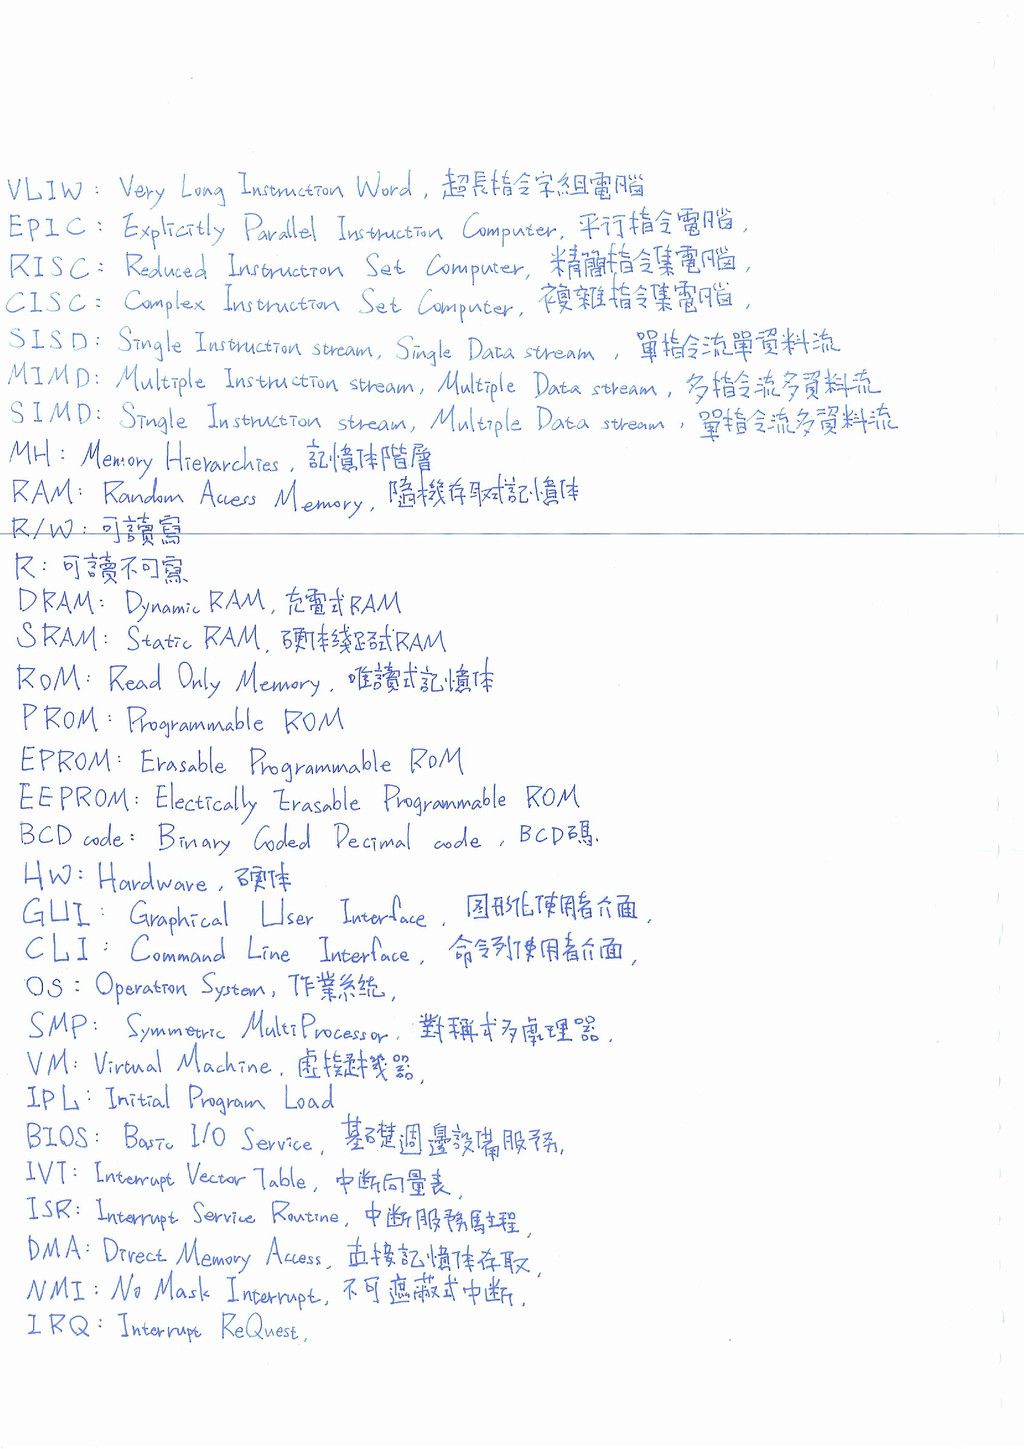 VLIW: Very Long Instruction Word, 超長指令字組電腦
EPIC: Explicitly Parallel Instruction Computer, 平行指令電腦,
RISC: Reduced Instruction Set Computer, 精簡指令集電腦,
CISC: Complex Instruction Set Computer, 複雜指令集電腦,
SISD: Single Instruction stream, Single Data stream, 單指令流單資料流
MIMD: Multiple Instruction stream, Multiple Data stream, 多指令流多資料流
SIMD: Single Instruction stream, Multiple Data stream, 單指令流多資料流
MH: Memory Hierarchies, 記憶体階層
RAM: Random Access Memory, 隨機存取式記憶体
R/W: 可讀寫
R: 可讀不可寫
DRAM: Dynamic RAM, 充電式RAM
SRAM: Static RAM, 硬体綫路式RAM
ROM: Read Only Memory, 唯讀式記憶体
PROM: Programmable ROM
EPROM: Erasable Programmable ROM
EEPROM: Electically Erasable Programmable ROM
BCD code: Binary Coded Decimal code, BCD碼.
HW: Hardware, 硬体
GUI: Graphical User Interface, 図形化使用者介面,
CLI: Command Line Interface, 命令列使用者介面,
OS: Operation System, 作業系統,
SMP: Symmetric MultiProcessor, 對稱式多處理器,
VM: Virtual Machine, 虛擬機器,
IPL: Initial Program Load
BIOS: Basic I/O Service, 基礎週邊設備服務,
IVT: Interrupt Vector Table, 中断向量表,
ISR: Interrupt Service Routine, 中断服務駐程,
DMA: Direct Memory Access, 直接記憶体存取,
NMI: No Mask Interrupt, 不可遮蔽式中断,
IRQ: Interrupt ReQuest,